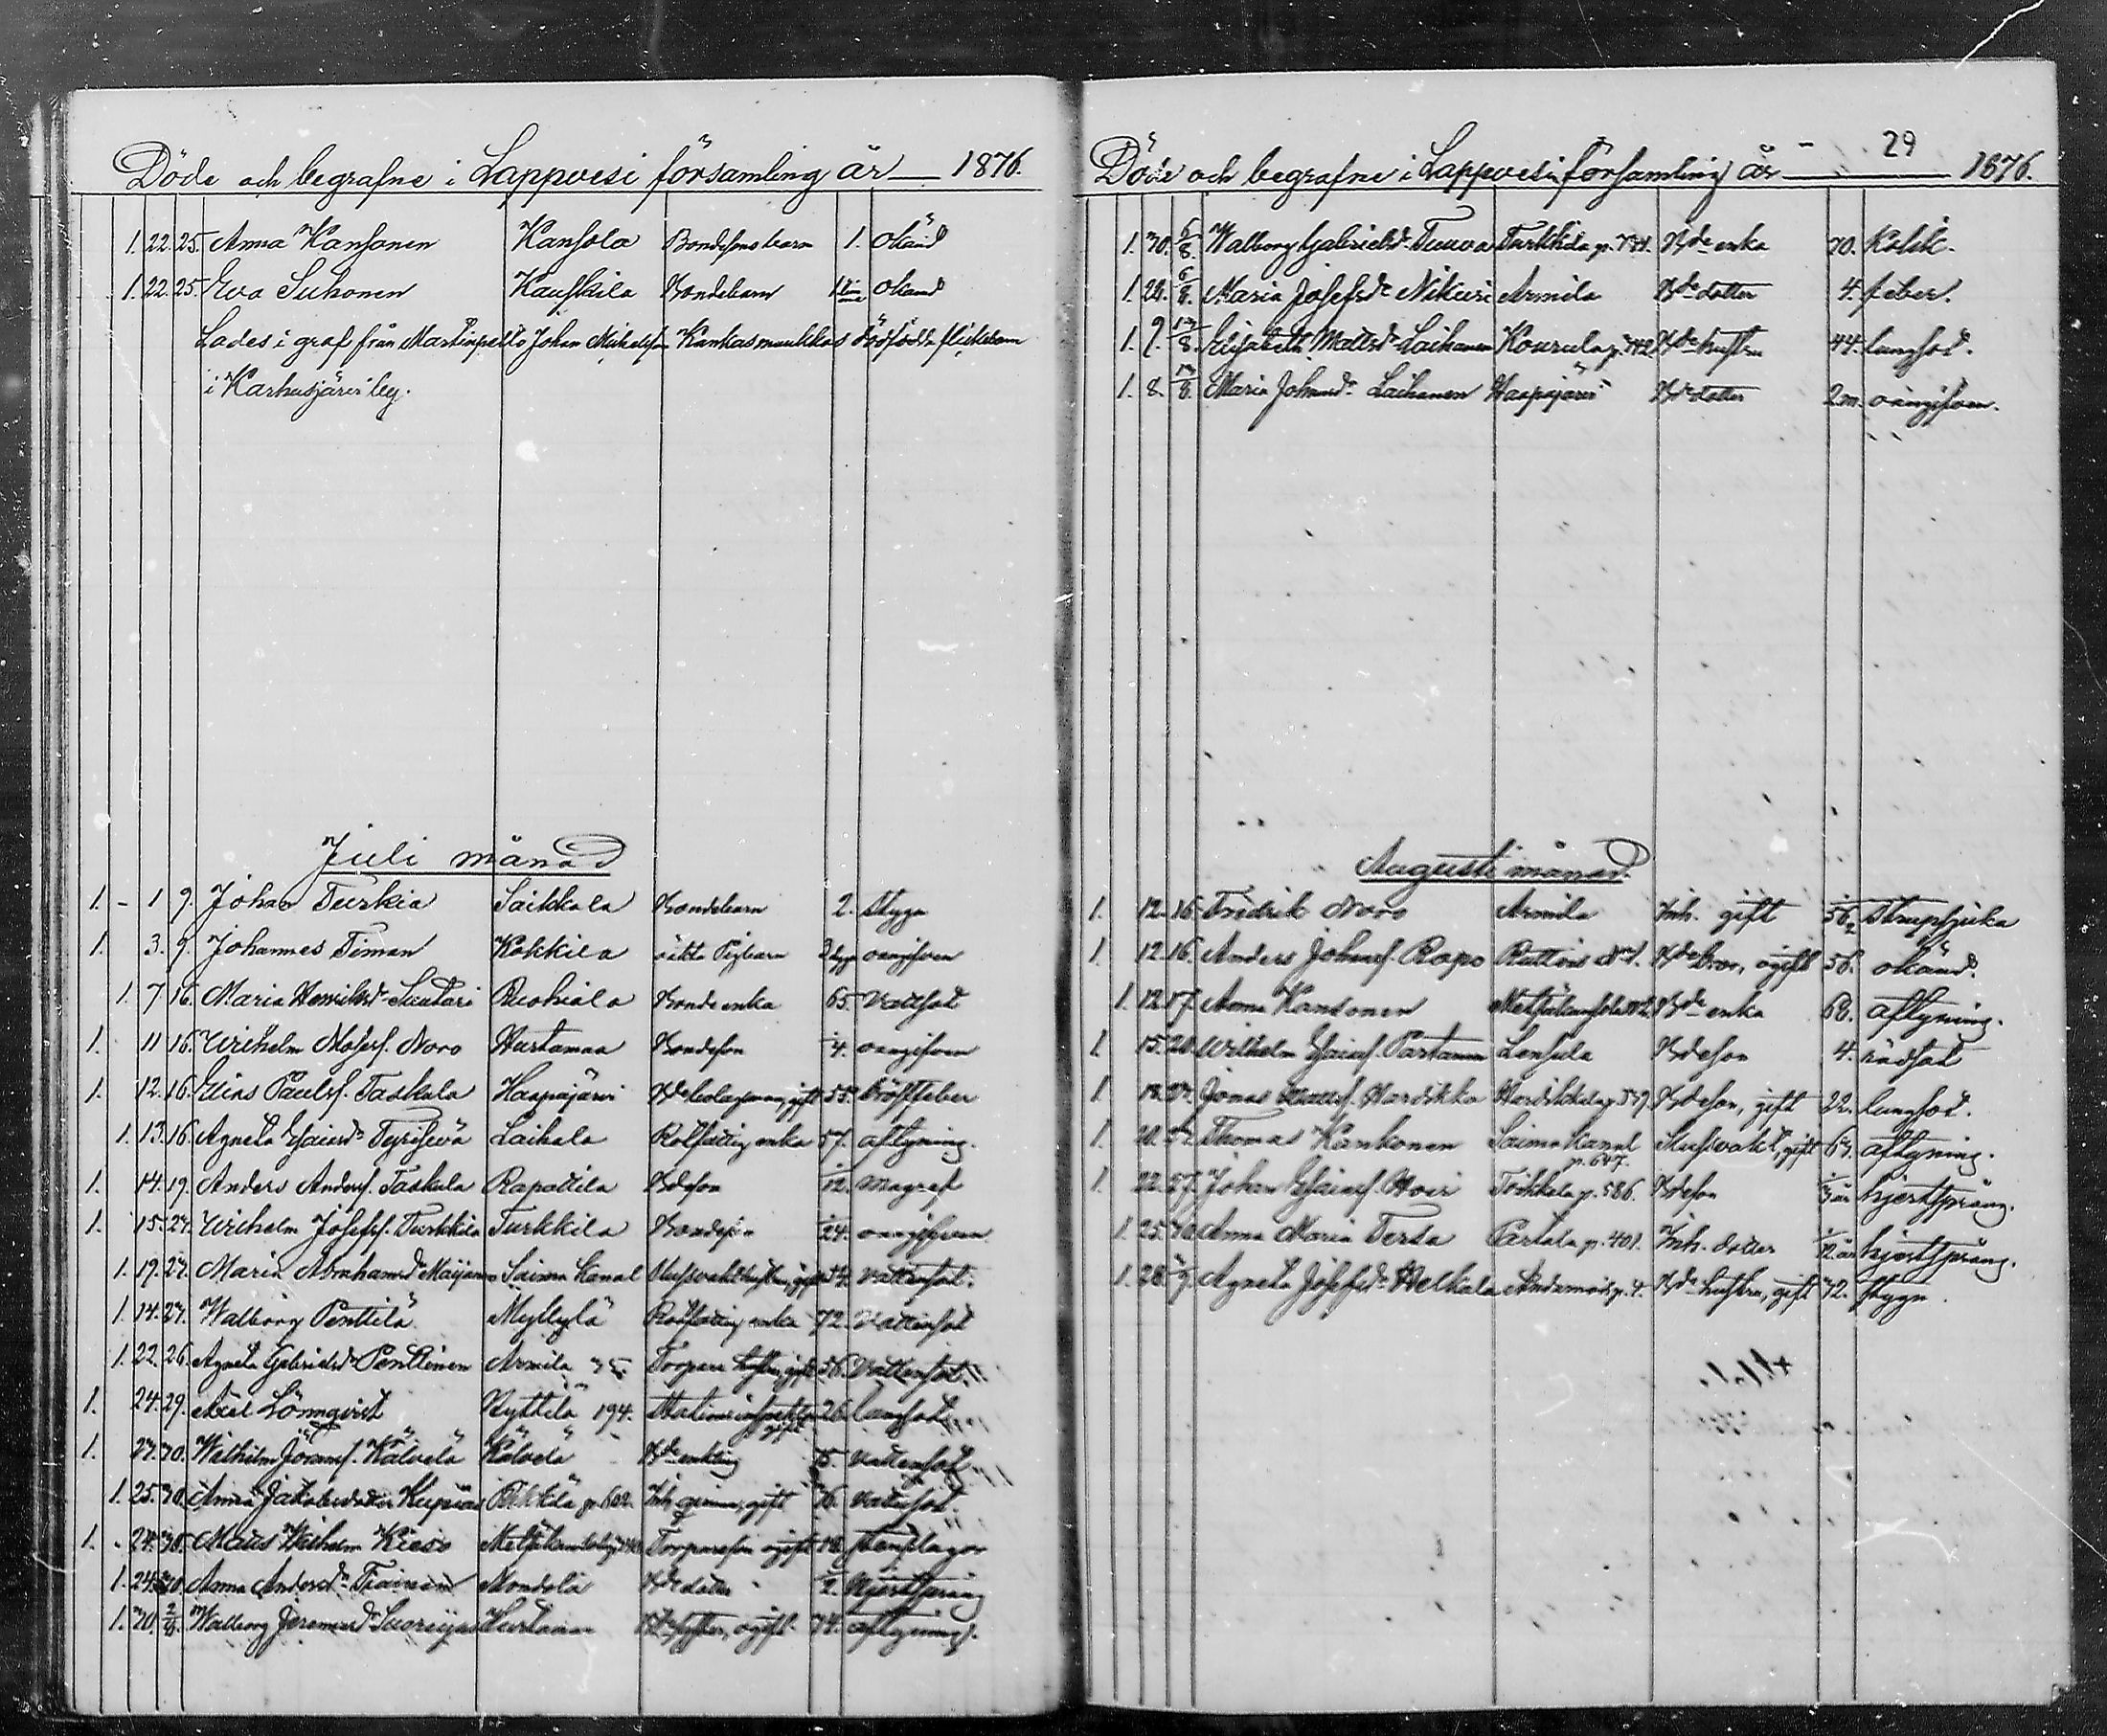 Döde och begrafne i Lappvesi församling år 1876.
1. 22. 25. Anna Kansanen Kansola Bondesons barn 1. Okänd
1. 22. 25. Eva Suhonen Kauskila Bondebarn Okänd
Lades i graf från Martinpello Johan Michelsson Kankasmaukkas dödfödda flickebarn
i Karhusjärvi by.
Juli månad
1. - 1 9. Johan Turkia Saikkala Bondebarn 2. Styga
1. 3. 9. Johannes Timan Kakkila oäkta Pigbarn oangifven
1. 7 16. Maria Henriksdr Suutari Ruohiala Bonde enka 65. Vattsot
1. 11 16. Wilhelm Mosesf. Noro Hurtamaa Bondeson 4. oangifven
1. 12. 16. Elias Paulsf. Taskula Haapajärvi Bde bolagsman, gift 55. Bröstfeber
1. 13. 16. Agneta Esaiasdr Tyrisevä Laihala Rotfattig enka 57. aftyning.
1. 14. 19. Anders Andersf. Taskula Rapattila Bdeson 12. Magref
1. 15. 27. Wilhelm Josefsf. Turkkila Turkkila Bondeson 24. oangifven
1. 19. 27. Maria Abrahamsdr Saima Kanal Vattensot.
1. 14. 27. Walborg Penttilä Myllylä Rotfattig enka 72. Vattensot
1. 22. 26. Agneta Gabrielsdr Penttinen Armila Torpare hustru, gift 56. Vattensot.
1. 24. 29. Axel Lönnqvist Kyttilä 194. Stationsinspektor gift 26. lungsot
1. 27. 30. Wilhelm Göransf. Kälvelä Kälvelä Bde enkling Vattensot
1. 25. 30. Anna Jakobsdotter Hupias Pikkilä p. 602. Inh. qvinna, gift 76. Vattensot.
1. 24. 30. Matts Wilhelm Torpareson ogift
1. 24. 30. Anna Andersdr Mondola Bde dotter 2. Hjertsprång
1. 30. 2/8. Walborg Jeremiasdr Hurtamaa ogift 74. aftyning.
29
Döde och begrafne i Lappvesi församling år 1876.
1. 30. 6/8. Walborg Gabrielsd. Tuuva Turkkila p. 731. Bde enka 70. Kolik.
1. 28. 6/8. Maria Josefsdr Nikuri Armila Bde dotter 4. feber.
1. 9. 13/8. Elisabeth Mattsdr Laihanen Kourula p. 342 Bde hustru 44. lungsot.
1. 8. 13/8. Maria Johansdr Laihanen Haapajärvi Bde dotter 2 m. oangifven.
Augusti månad.
1. 12. 16. Fredrik Noro Armila Inh. gift 56. Strupsjuka
1. 12. 16. Anders Johansf. Rapo Bde bror, ogift 56. okänd.
1. 12. 17. Anna Kansonen Bde enka 68. aftyning.
1. 15. 20. Wilhelm Esaiasf. Partanen Lensula Bdeson 4. rödsot
1. 18. 27. Jonas Mattsf. Hardikka Hardikkala p. 579. Bdeson, gift 22. lungsot.
1. 20. 27. Thomas Kankonen Saima Kanal p. 647. Slussvakt, gift 67. aftyning.
1. 22. 27. Johan Esaiasf. Hovi Toikkala p. 586. Bdeson hjertsprång.
1. 25. 30. Anna Maria Terda Partala p. 401. Inh. dotter hjertsprång.
1. 28. 3/9. Agneta Josefsdr Welkala p. 4. Bde hustru, gift 72. Styga.